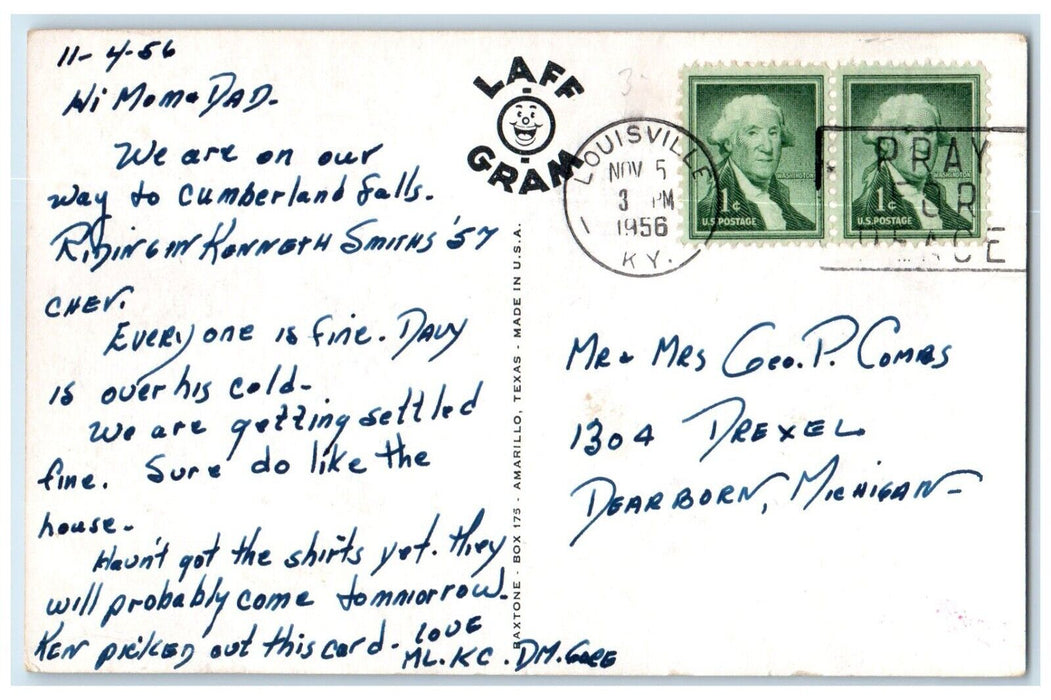 11-4-56
Hi Mom & DAD-
We are on our
way to Cumberland falls.
RiDing in Kenneth Smiths '57
Chev.
Everyone is fine. Davy
is over his cold-
We are getting settled
fine. Sure do like the
house-
Havn't got the shirts yet. They
will probably come tommorrow-
Ken picked out this card- Love
ML. KC. DM. Gore
LAFF
GRAM
BAXTONE - BOX 175 - AMARILLO, TEXAS - MADE IN U.S.A.
LOUISVILLE
NOV 5
3 PM
1956
KY.
WASHINGTON
1¢
U.S. POSTAGE
WASHINGTON
1¢
U.S. POSTAGE
PRAY
FOR
PEACE
Mr & Mrs Geo. P. Combs
1304 Drexel
Dearborn, Michigan-